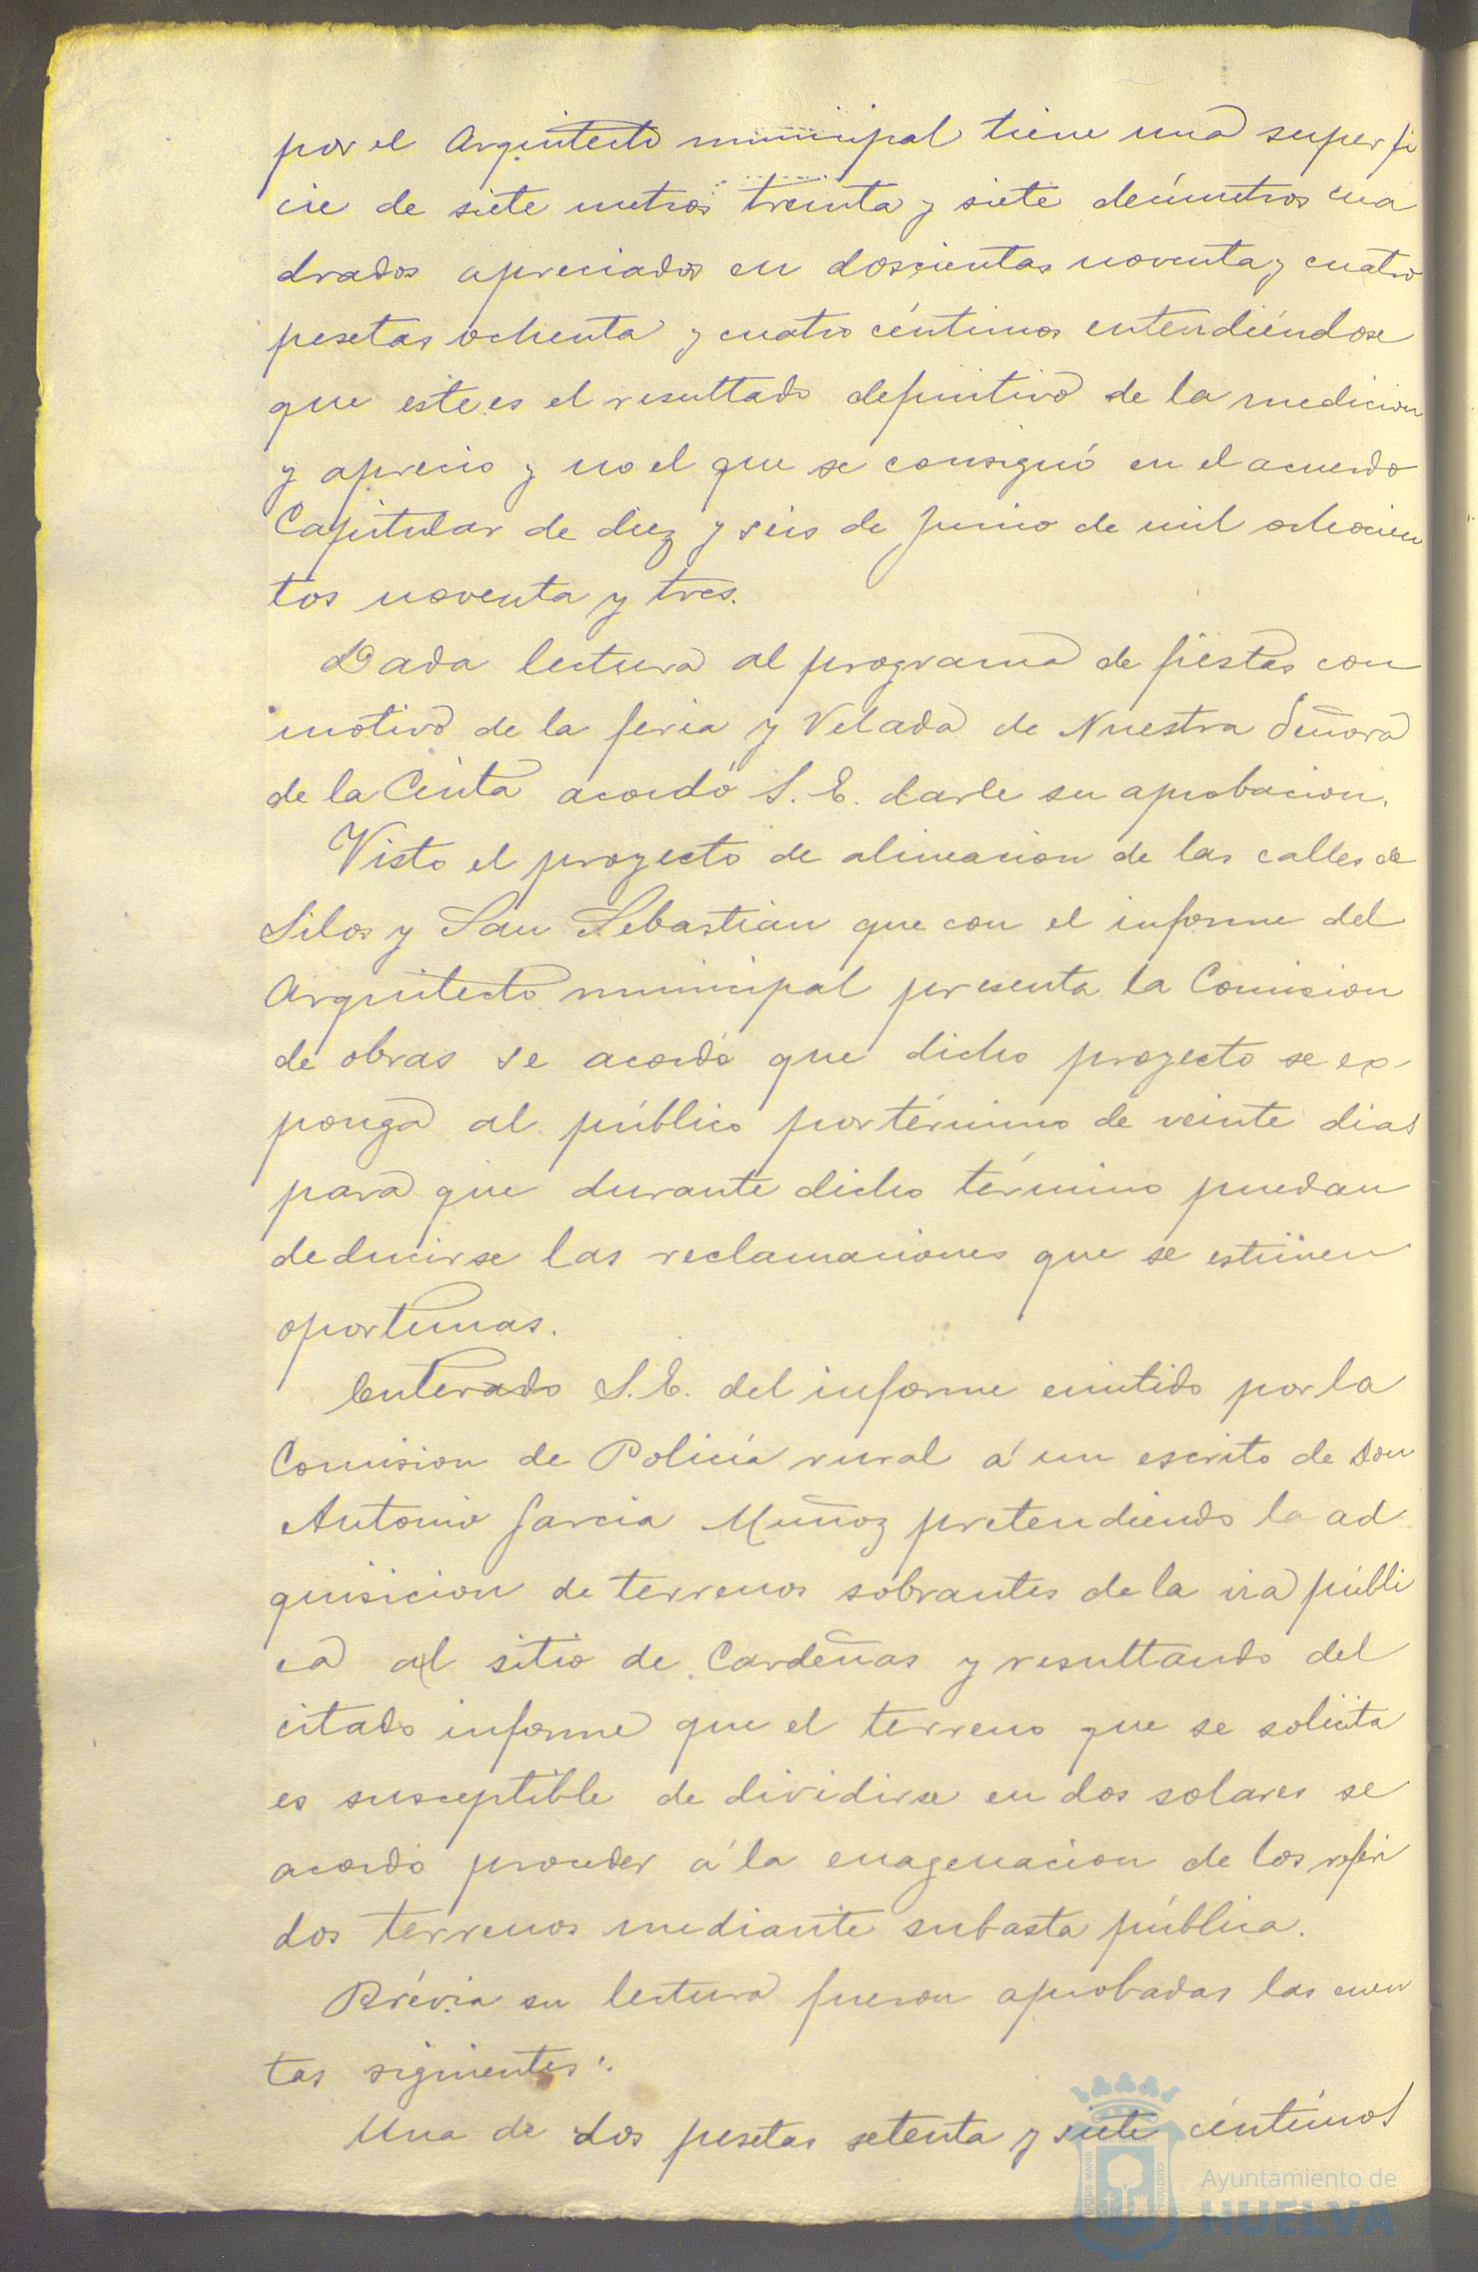 por el Arquitecto municipal tiene una superfi
cie de siete metros treinta y siete decímetros cua
drados apreciados en doscientas noventa y cuatro
pesetas ochenta y cuatro céntimos entendiéndose
que este es el resultado definitivo de la medicion
y aprecio y no el que se consignó en el acuerdo
Capitular de diez y seis de Junio de mil ochocien
tos noventa y tres.
Dada lectura al programa de fiestas con
motivo de la feria y Velada de Nuestra Señora
de la Cinta acordó S. E. darle su aprobacion.
Visto el proyecto de alineacion de las calles de
Silos y San Sebastian que con el informe del
Arquitecto municipal presenta la Comision
de obras se acordó que dicho proyecto se ex-
ponga al público por término de veinte dias
para que durante dicho término puedan
deducirse las reclamaciones que se estimen
oportunas.
Enterado S. E. del informe emitido por la
Comision de Policía rural á un escrito de Don
Antonio Garcia Muñoz pretendiendo la ad
quisicion de terrenos sobrantes de la via públi
ca al sitio de Cardeñas y resultando del
citado informe que el terreno que se solicita
es susceptible de dividirse en dos solares se
acordó proceder á la enagenacion de los referi
dos terrenos mediante subasta pública.
Prévia su lectura fueron aprobadas las cuen
tas siguientes:
Una de dos pesetas setenta y siete céntimos
Ayuntamiento de
HUELVA